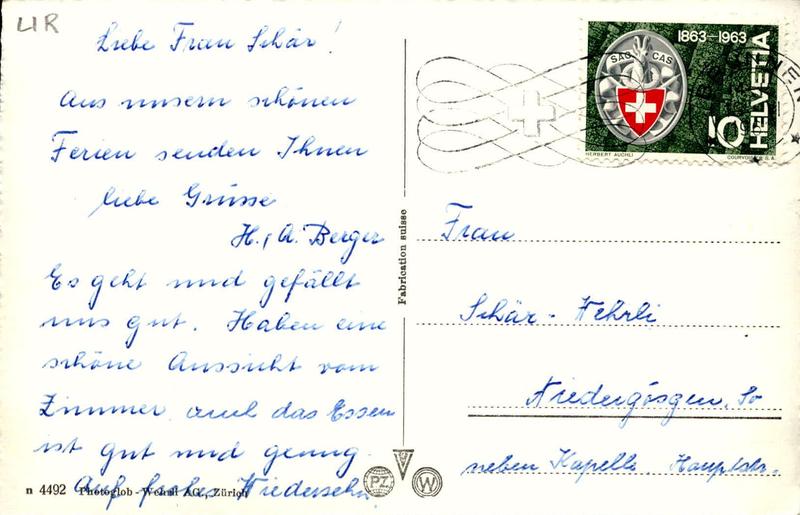 UR
Liebe Frau Schär!
Aus unsern schönen
Ferien senden Ihnen
liebe Grüsse
H. + A. Berger
Es geht und gefällt
uns gut. Haben eine
schöne Aussicht vom
Zimmer und das Essen
ist gut und genug.
Auf frohes Wiedersehn
n 4492 Photoglob-Wehrli A.G., Zürich
Fabrication suisse
PZ
W
1863-1963
SAC CAS
HELVETIA
10
HERBERT AUCHLI
COURVOISIER S.A.
Frau
Schär-Fehrli
Niedergösgen So
neben Kapelle Hauptstr.